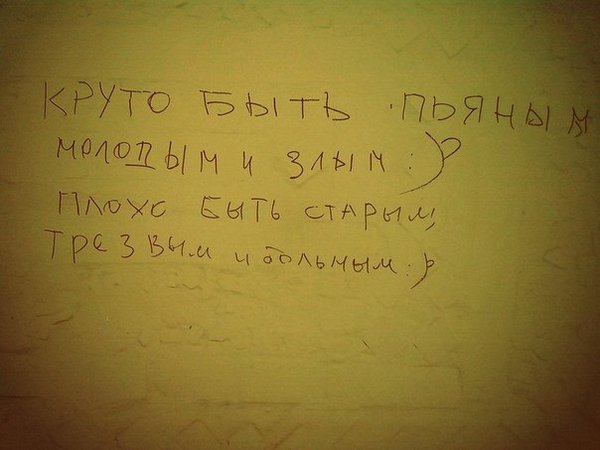 КРУТО БЫТЬ ПЬЯНЫМ
МОЛОДЫМ И ЗЛЫМ :)
ПЛОХО БЫТЬ СТАРЫМ,
ТРЕЗВЫМ И БОЛЬНЫМ :)